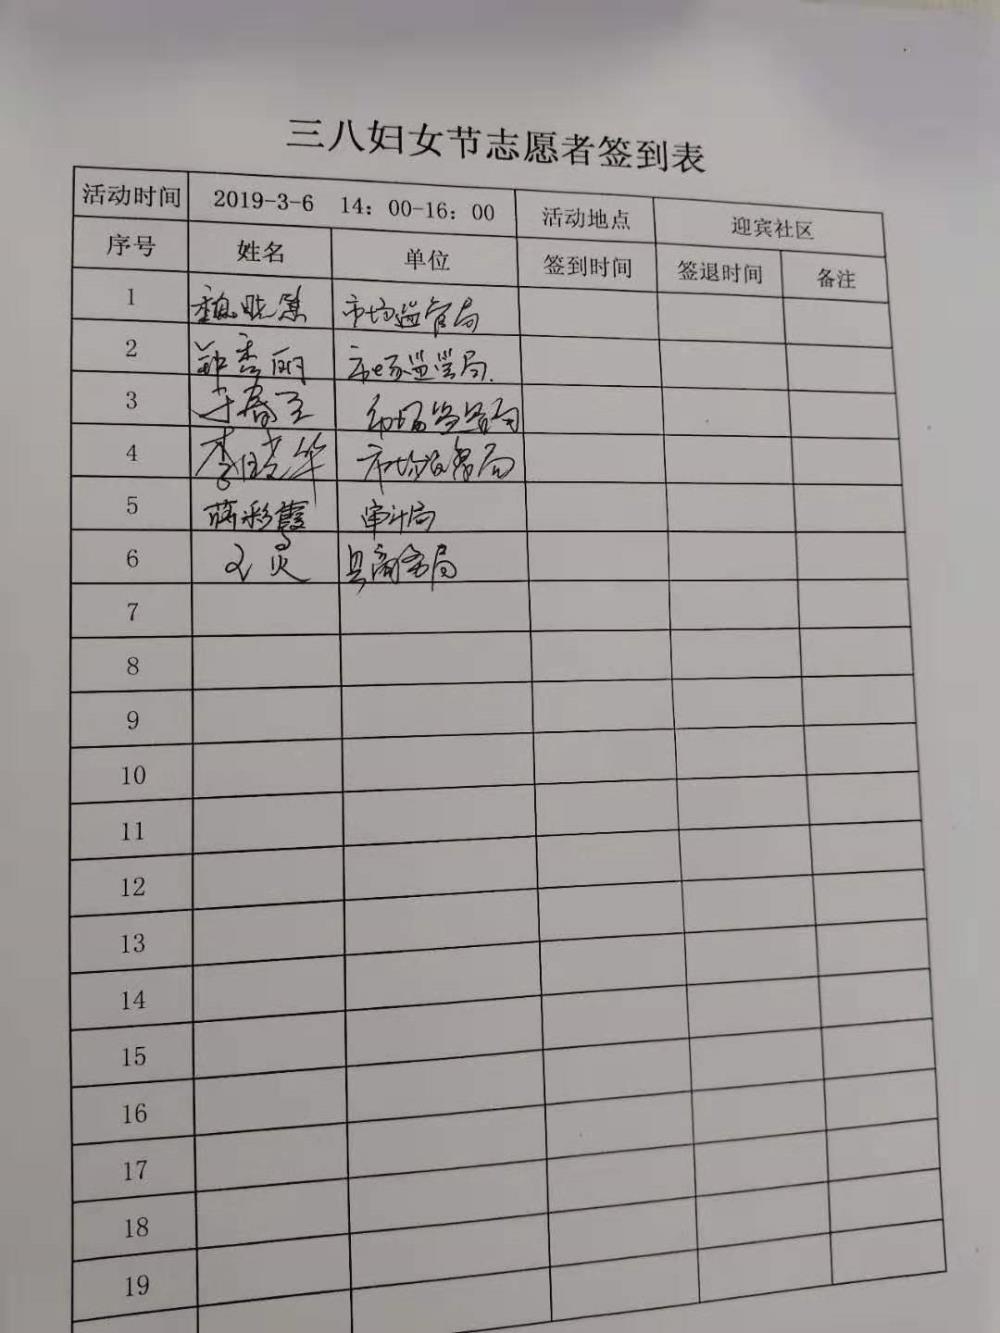 三八妇女节志愿者签到表
活动时间 2019-3-6 14：00-16：00 活动地点 迎宾社区
序号 姓名 单位 签到时间 签退时间 备注
1 市场监管局
2 郑秀丽 市场监管局.
3 市场监管局
4 李晓华 市场监管局
5 蒋彩霞 审计局
6 县商务局
7
8
9
10
11
12
13
14
15
16
17
18
19